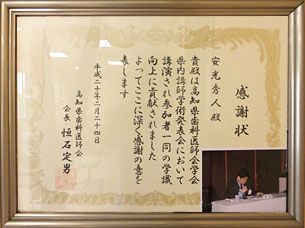 感謝状
安光秀人 殿
貴殿は高知県歯科医師会学会
県内講師学術発表会において
講演され参加者一同の学識
向上に貢献されました
よってここに深く感謝の意を
表します
平成二十年二月二十四日
高知県歯科医師会
会長 恒石定男